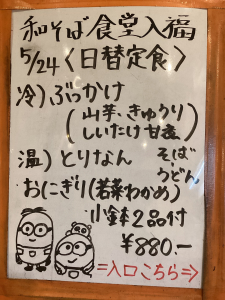 和そば食堂入福
5/24〈日替定食〉
冷)ぶっかけ
(山芋、きゅうり
しいたけ甘煮)
温)とりなん
そば
うどん
おにぎり(若菜わかめ)
小鉢2品付
¥880.-
⇒入口こちら⇒